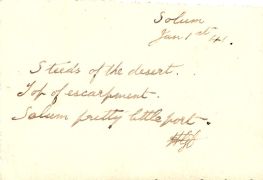 Solum
Jan 1st 41.
Steeds of the desert.
Top of escarpment.
Solum pretty little port.